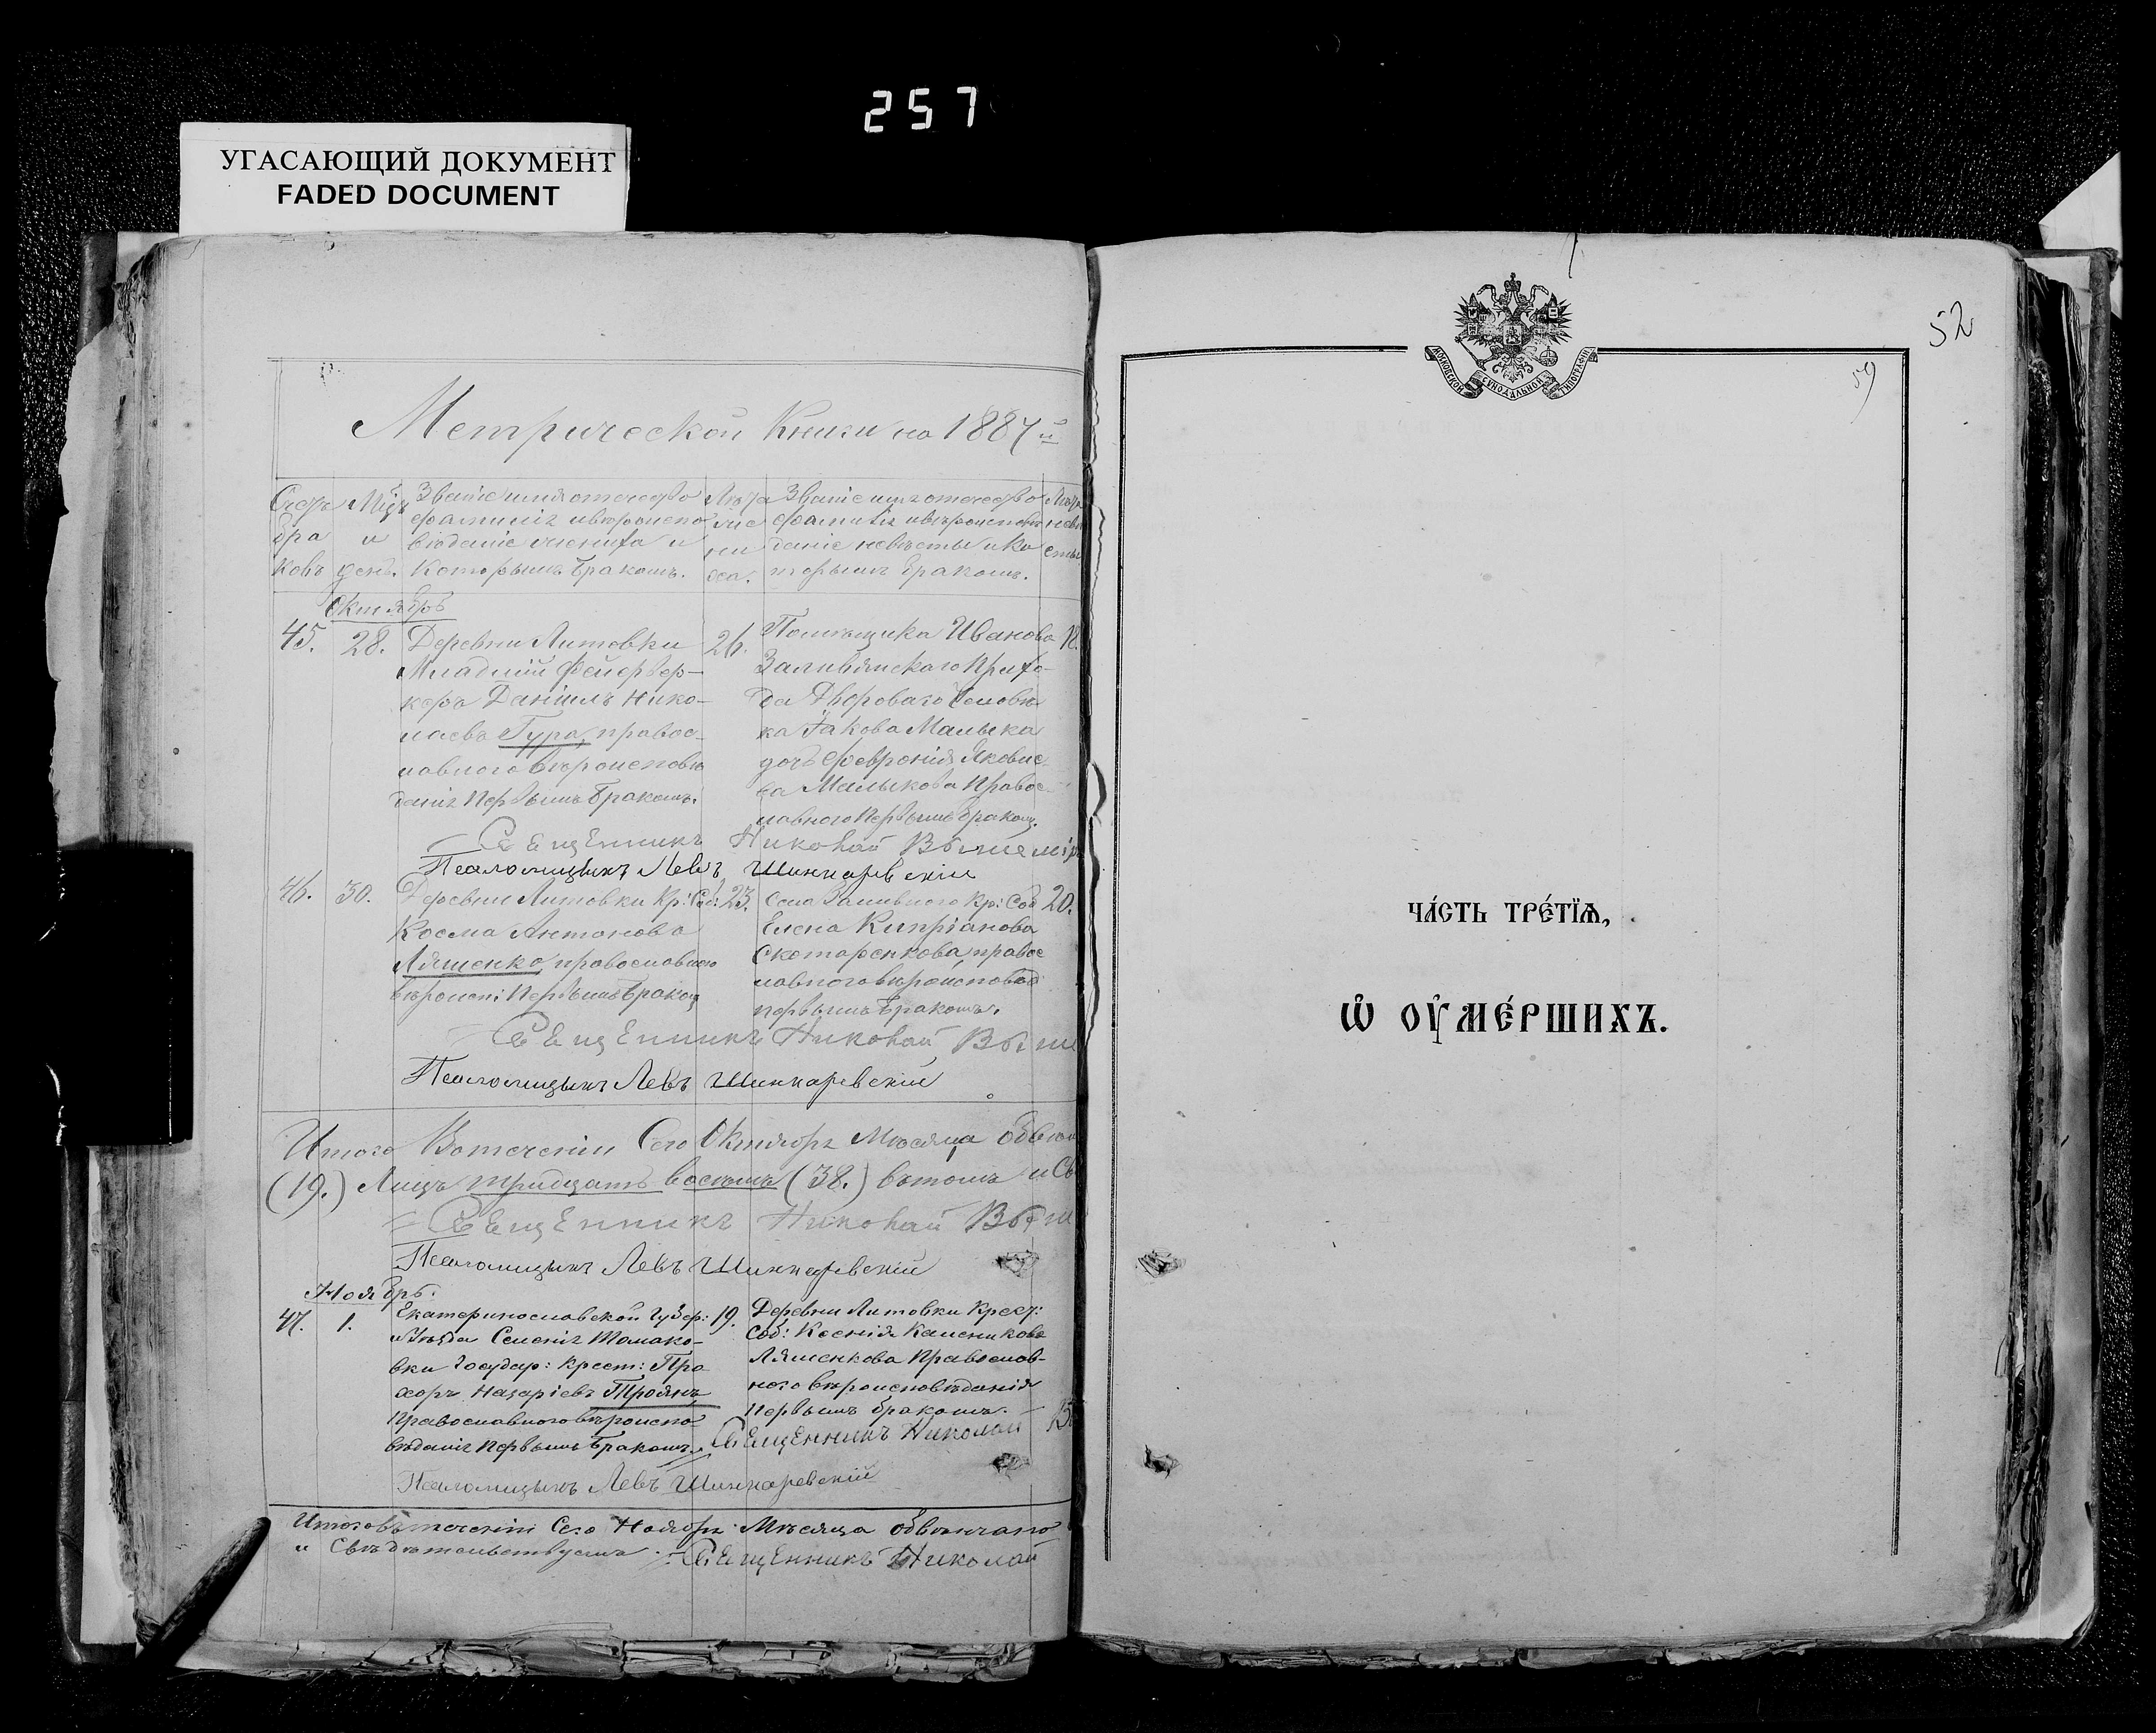 257
УГАСАЮЩИЙ ДОКУМЕНТ
FADED DOCUMENT
Метрической Книги на 1887й
Счетъ бра ковъ
Мцъ и день.
Званіе имя отчество фамилія и вѣроиспо вѣданіе жениха и которымъ бракомъ.
Лѣта же ни ха.
Званіе имя отчество фамилія и вѣроисповѣ даніе невѣсты и ко торымъ бракомъ.
Лѣта невѣ сты
Октябрь
45. 28.
Деревни Литовки
Младшій Фейервер-
керъ Даніилъ Нико-
лаевъ Гура, правос-
лавного вѣроисповѣ
данія первымъ бракомъ.
26.
Помѣщика Иванова
Заливянскаго прихо-
да Двороваго человѣ
ка Іакова Малыка
дочь Феврония Яковле-
ва Малыкова Правос-
лавного первымъ бракомъ.
18.
Священникъ Николай Вышемір
Псаломщикъ Левъ Шинкаревскій
46. 30.
Деревни Литовки Кр: Соб:
Косма Антоновъ
Ляшенко, православного
вѣроисп: первымъ бракомъ
23.
Села Заливного Кр: Соб
Елена Кипріанова
Скотаренкова, правос
лавного вѣроисповѣд
первымъ бракомъ.
20.
Священникъ Николай Выше
Псаломщикъ Левъ Шинкаревскій
Итого Втеченіи Сего Октября Мѣсяца обвѣн
(19.) Лицъ тридцать восемь (38.) вътомъ и Св
Священникъ Николай Выше
Псаломщикъ Левъ Шинкаревскій
Ноябрь.
47. 1.
Екатеринославской Губер:
и Уѣзда Селенія Томако-
вки Государ: Крест: Про
хоръ Назаріевъ Троянъ
Православного вѣроиспо
вѣданія первымъ бракомъ.
19.
Деревни Литовки Крест:
Соб: Ксенія
Ляшенкова Православ-
ного вѣроисповѣданія
первымъ бракомъ.
Священникъ Николай
Псаломщикъ Левъ Шинкаревскій
Итого втеченіи Сего Ноября Мѣсяца обвѣнчано
и Свѣдѣтельствуемъ. Священникъ Николай
52
МОСКОВСКОЙ СѴНОДАЛЬНОЙ ТИПОГРАФІИ
59
ЧА́СТЬ ТРЕ́ТЇѦ,
Ѡ҆ ОУ҆МЕ́РШИХЪ.